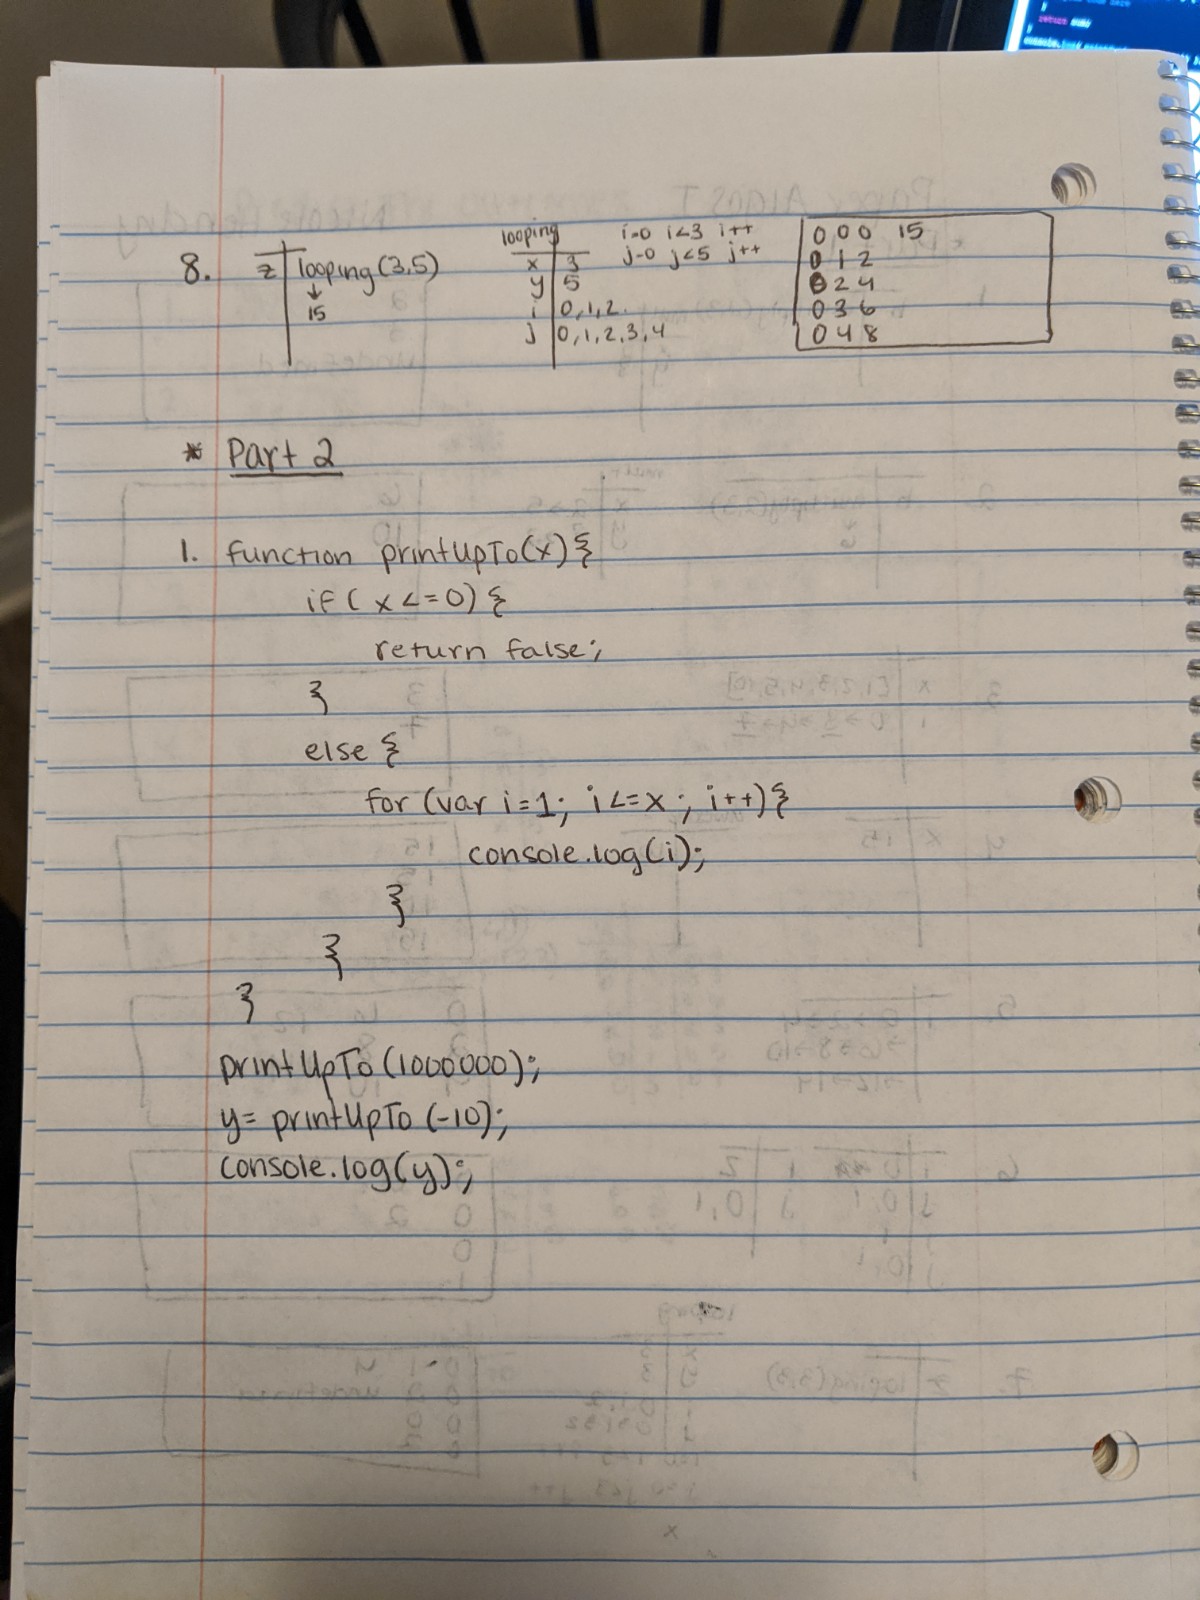 8. z looping(3,5)
↓
15
looping
x 3
y 5
i 0,1,2.
j 0,1,2,3,4
i=0 i<3 i++
j=0 j<5 j++
0 0 0 15
0 1 2
0 2 4
0 3 6
0 4 8
* Part 2
1. function printUpTo(x){
if( x <=0) {
return false;
}
else {
for (var i=1; i<=x ; i++){
console.log(i);
}
}
}
printUpTo(1000000);
y= printUpTo (-10);
console.log(y);
return